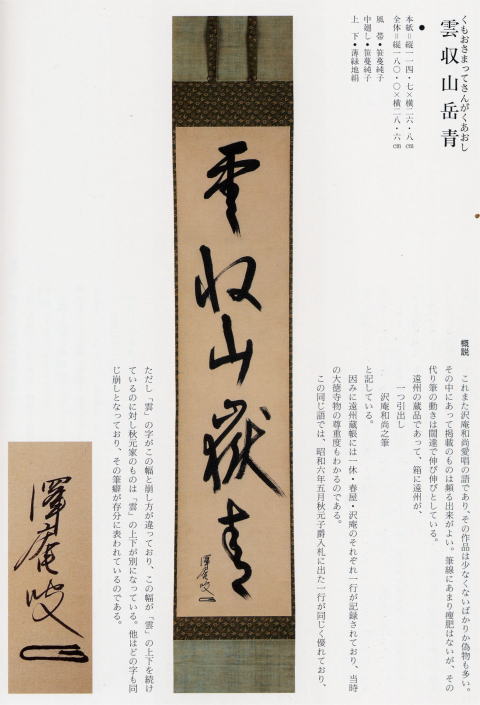 くもおさまってさんがくあおし
雲収山岳青
●
本紙＝縦一一四・七×横二六・八㎝
全体＝縦一八〇・〇×横二八・六㎝
風　帯・笹蔓純子
中廻し・笹蔓純子
上　下・薄緑地絹
雲収山嶽青
澤庵叟
概説
これまた沢庵和尚愛唱の語であり、その作品は少なくないばかりか偽物も多い。
その中にあって掲載のものは頗る出来がよい。筆線にあまり痩肥はないが、その
代り筆の動きは闊達で伸び伸びとしている。
遠州の蔵品であって、箱に遠州が、
一つ引出し
沢庵和尚之筆
と記している。
因みに遠州蔵帳には一休・春屋・沢庵のそれぞれ一行が記録されており、当時
の大徳寺物の尊重度もわかるのである。
この同じ語では、昭和六年五月秋元子爵入札に出た一行が同じく優れており、
ただし「雲」の字がこの幅と崩し方が違っており、この幅が「雲」の上下を続け
ているのに対し秋元家のものは「雲」の上下が別になっている。他はどの字も同
じ崩しとなっており、その筆癖が存分に表われているのである。
澤庵叟